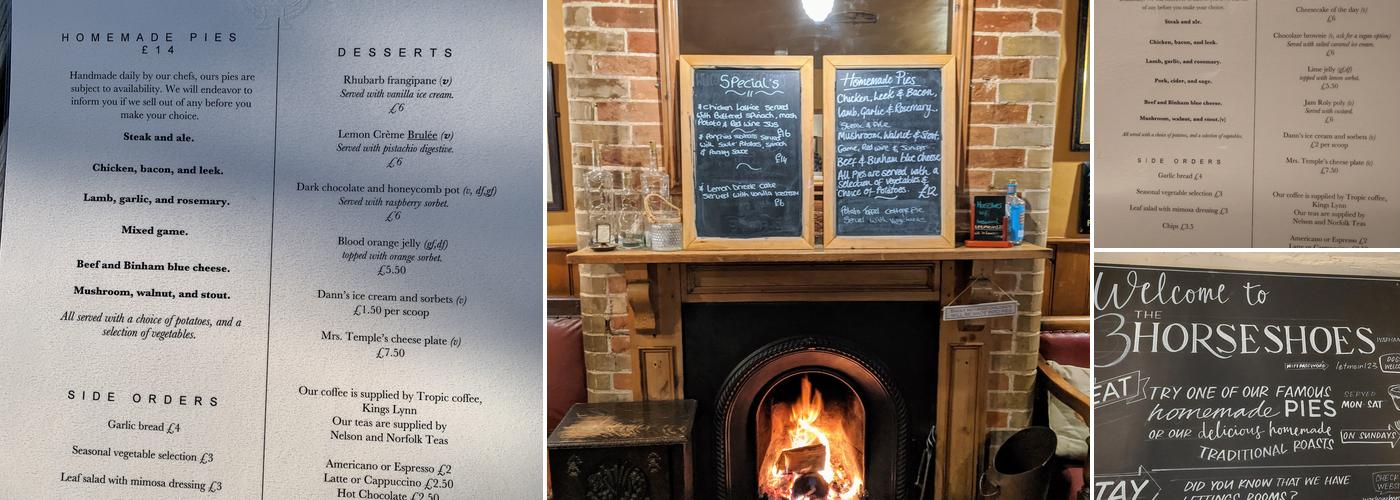 HOMEMADE PIES
£14
Handmade daily by our chefs, ours pies are
subject to availability. We will endeavor to
inform you if we sell out of any before you
make your choice.
Steak and ale.
Chicken, bacon, and leek.
Lamb, garlic, and rosemary.
Mixed game.
Beef and Binham blue cheese.
Mushroom, walnut, and stout.
All served with a choice of potatoes, and a
selection of vegetables.
SIDE ORDERS
Garlic bread £4
Seasonal vegetable selection £3
Leaf salad with mimosa dressing £3
DESSERTS
Rhubarb frangipane (v)
Served with vanilla ice cream.
£6
Lemon Crème Brulée (v)
Served with pistachio digestive.
£6
Dark chocolate and honeycomb pot (v, df,gf)
Served with raspberry sorbet.
£6
Blood orange jelly (gf,df)
topped with orange sorbet.
£5.50
Dann's ice cream and sorbets (v)
£1.50 per scoop
Mrs. Temple's cheese plate (v)
£7.50
Our coffee is supplied by Tropic coffee,
Kings Lynn
Our teas are supplied by
Nelson and Norfolk Teas
Americano or Espresso £2
Latte or Cappuccino £2.50
Hot Chocolate £2.50
Special's
Chicken Lattice Served
With Buttered Spinach, mash
Potato & Red Wine Jus
£16
Served
With Sauté Potatoes, Spinach
& Parsley Sauce
£14
Lemon Drizzle Cake
Served with Vanilla Icecream
£6
Homemade Pies
Chicken, Leek & Bacon,
Lamb, Garlic & Rosemary...
Steak & Ale
Mushroom, Walnut & Stout.
Game, Red Wine & Juniper
Beef & Binham blue cheese
All Pies are served with a
Selection of Vegetables &
Choice of Potatoes. £12
Potato Topped Cottage Pie
Served With Vegetables
of any before you make your choice.
Steak and ale.
Chicken, bacon, and leek.
Lamb, garlic, and rosemary.
Pork, cider, and sage.
Beef and Binham blue cheese.
Mushroom, walnut, and stout.(v)
All served with a choice of potatoes, and a selection of vegetables.
SIDE ORDERS
Garlic bread £4
Seasonal vegetable selection £3
Leaf salad with mimosa dressing £3
Chips £3.5
Cheesecake of the day (v)
£6
Chocolate brownie (v, ask for a vegan option)
Served with salted caramel ice cream.
£6
Lime jelly (gf,df)
topped with lemon sorbet.
£5.50
Jam Roly poly (v)
Served with custard.
£6
Dann's ice cream and sorbets (v)
£2 per scoop
Mrs. Temple's cheese plate (v)
£7.50
Our coffee is supplied by Tropic coffee,
Kings Lynn
Our teas are supplied by
Nelson and Norfolk Teas
Americano or Espresso £2
Welcome to
THE
3 HORSESHOES
WIFI PASSWORD letmein123
EAT TRY ONE OF OUR FAMOUS
homemade PIES
OR OUR delicious homemade
TRADITIONAL ROASTS
SERVED
MON-SAT
ON SUNDAYS
TAY DID YOU KNOW THAT WE HAVE